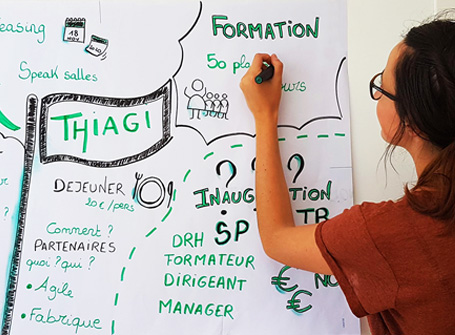 easing
18
NOV
20
FORMATION
50
Speak salles
THIAGI
DEJEUNER
20€/pers
Comment ?
PARTENAIRES
quoi ? qui ?
• Agile
• Fabrique
? ? ?
INAUGURATION
SP TR
DRH
FORMATEUR
DIRIGEANT
MANAGER
€
€
NO